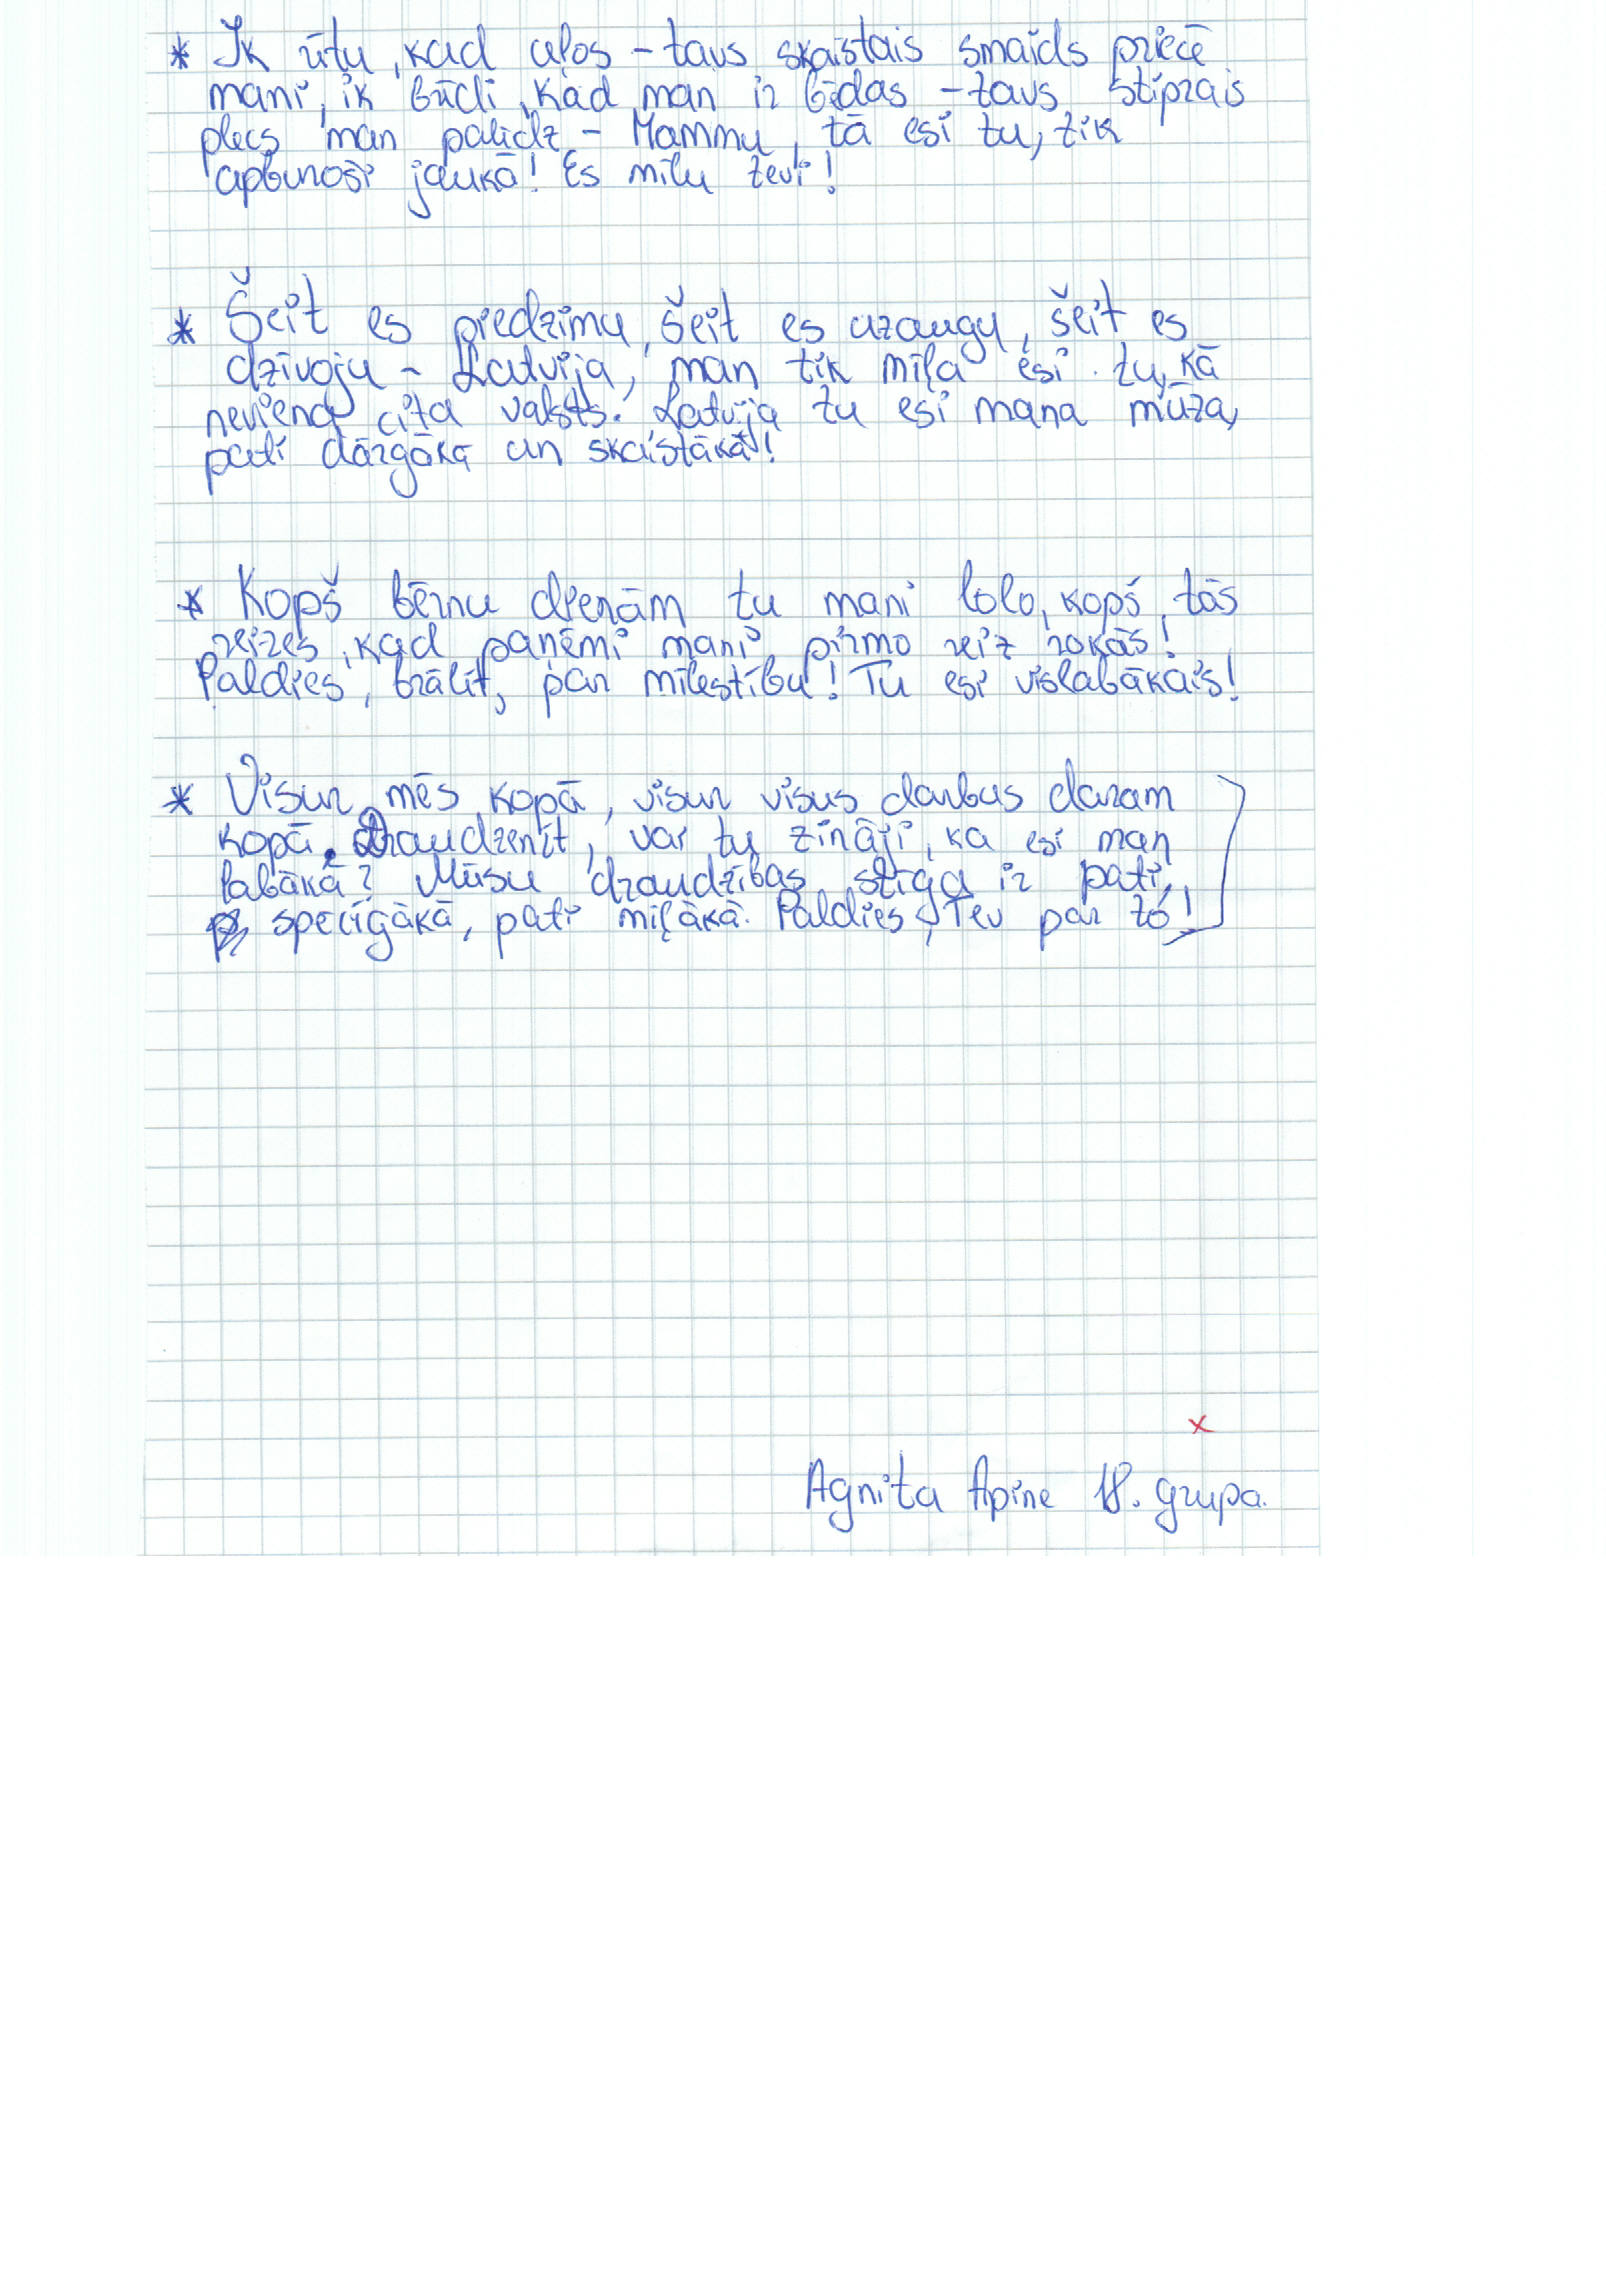 * Ik rītu, kad ceļos - tavs skaistais smaids priecē
mani, ik brīdi, kad man ir bēdas - tavs stiprais
plecs man palīdz - Mammu, tā esi tu, tik
apburoši jaukā! Es mīlu tevi!
* Šeit es piedzimu, šeit es uzaugu, šeit es
dzīvoju - Latvija, man tik mīļa esi tu, kā
neviena cita valsts. Latvija tu esi mana mūža,
pati dārgākā un skaistākā!
* Kopš bērnu dienām tu mani lolo, kopš tās
reizes, kad paņēmi mani pirmo reiz rokās!
Paldies, brālīt, par mīlestību! Tu esi vislabākais!
* Visur mēs kopā, visur visus darbus daram
kopā. Draudzenīt, vai tu zināji, ka esi man
labākā? Mūsu draudzības stīga ir pati
specīgākā, pati mīļākā. Paldies, Tev par to!
x
Agnita Apine 18. grupa.